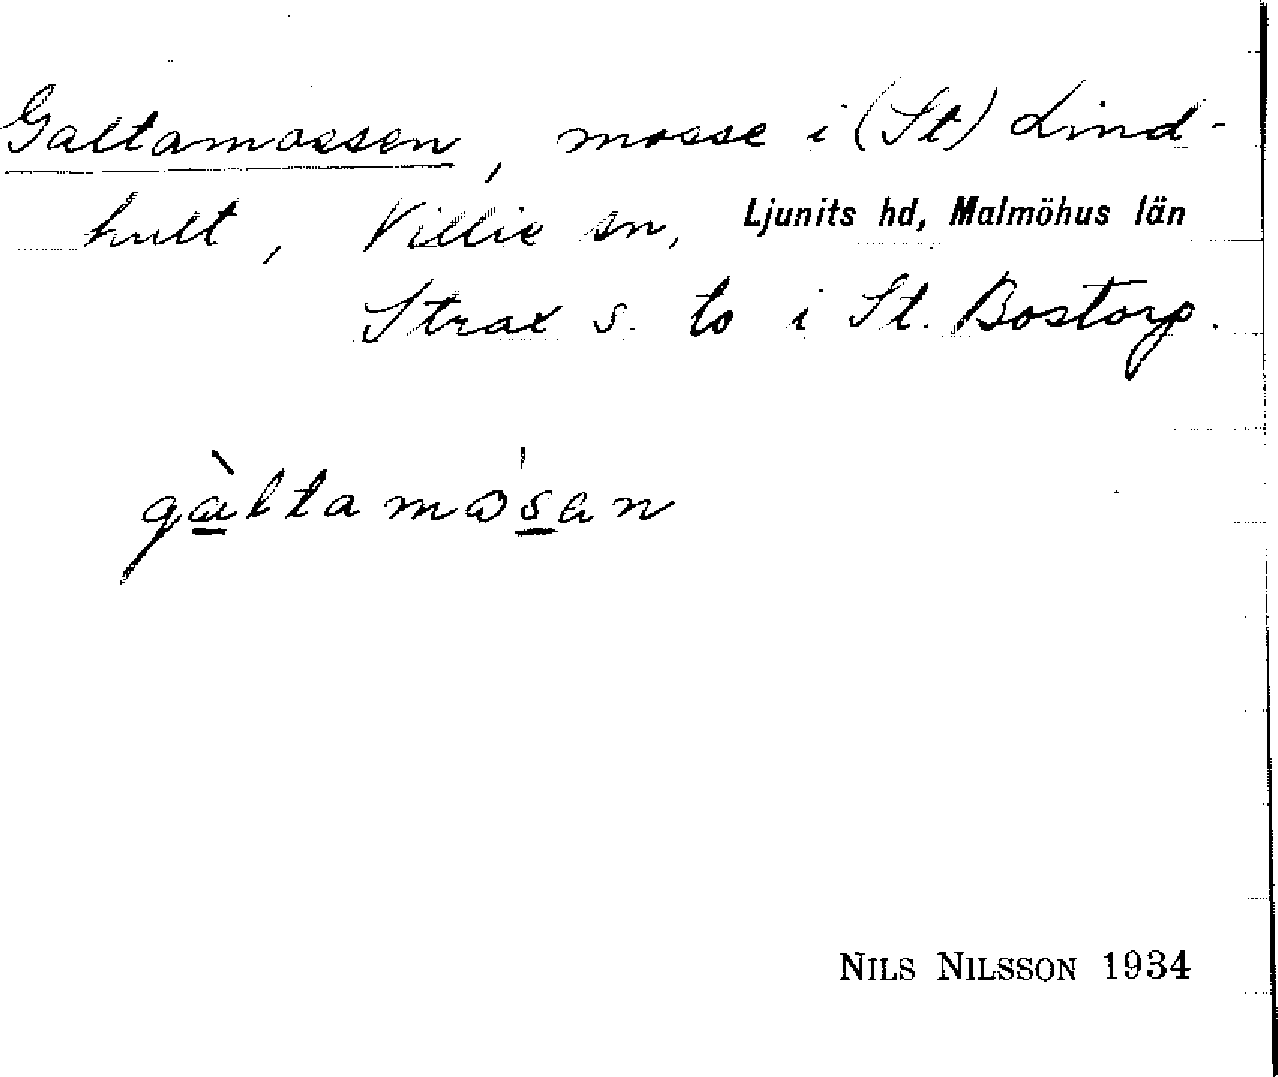 Galtamossen, mosse i (St) Lind-
hult, Villie sn, Ljunits hd, Malmöhus län
Strax s. to i St. Bostorp.
gàltamɔ́san
NILS NILSSON 1934